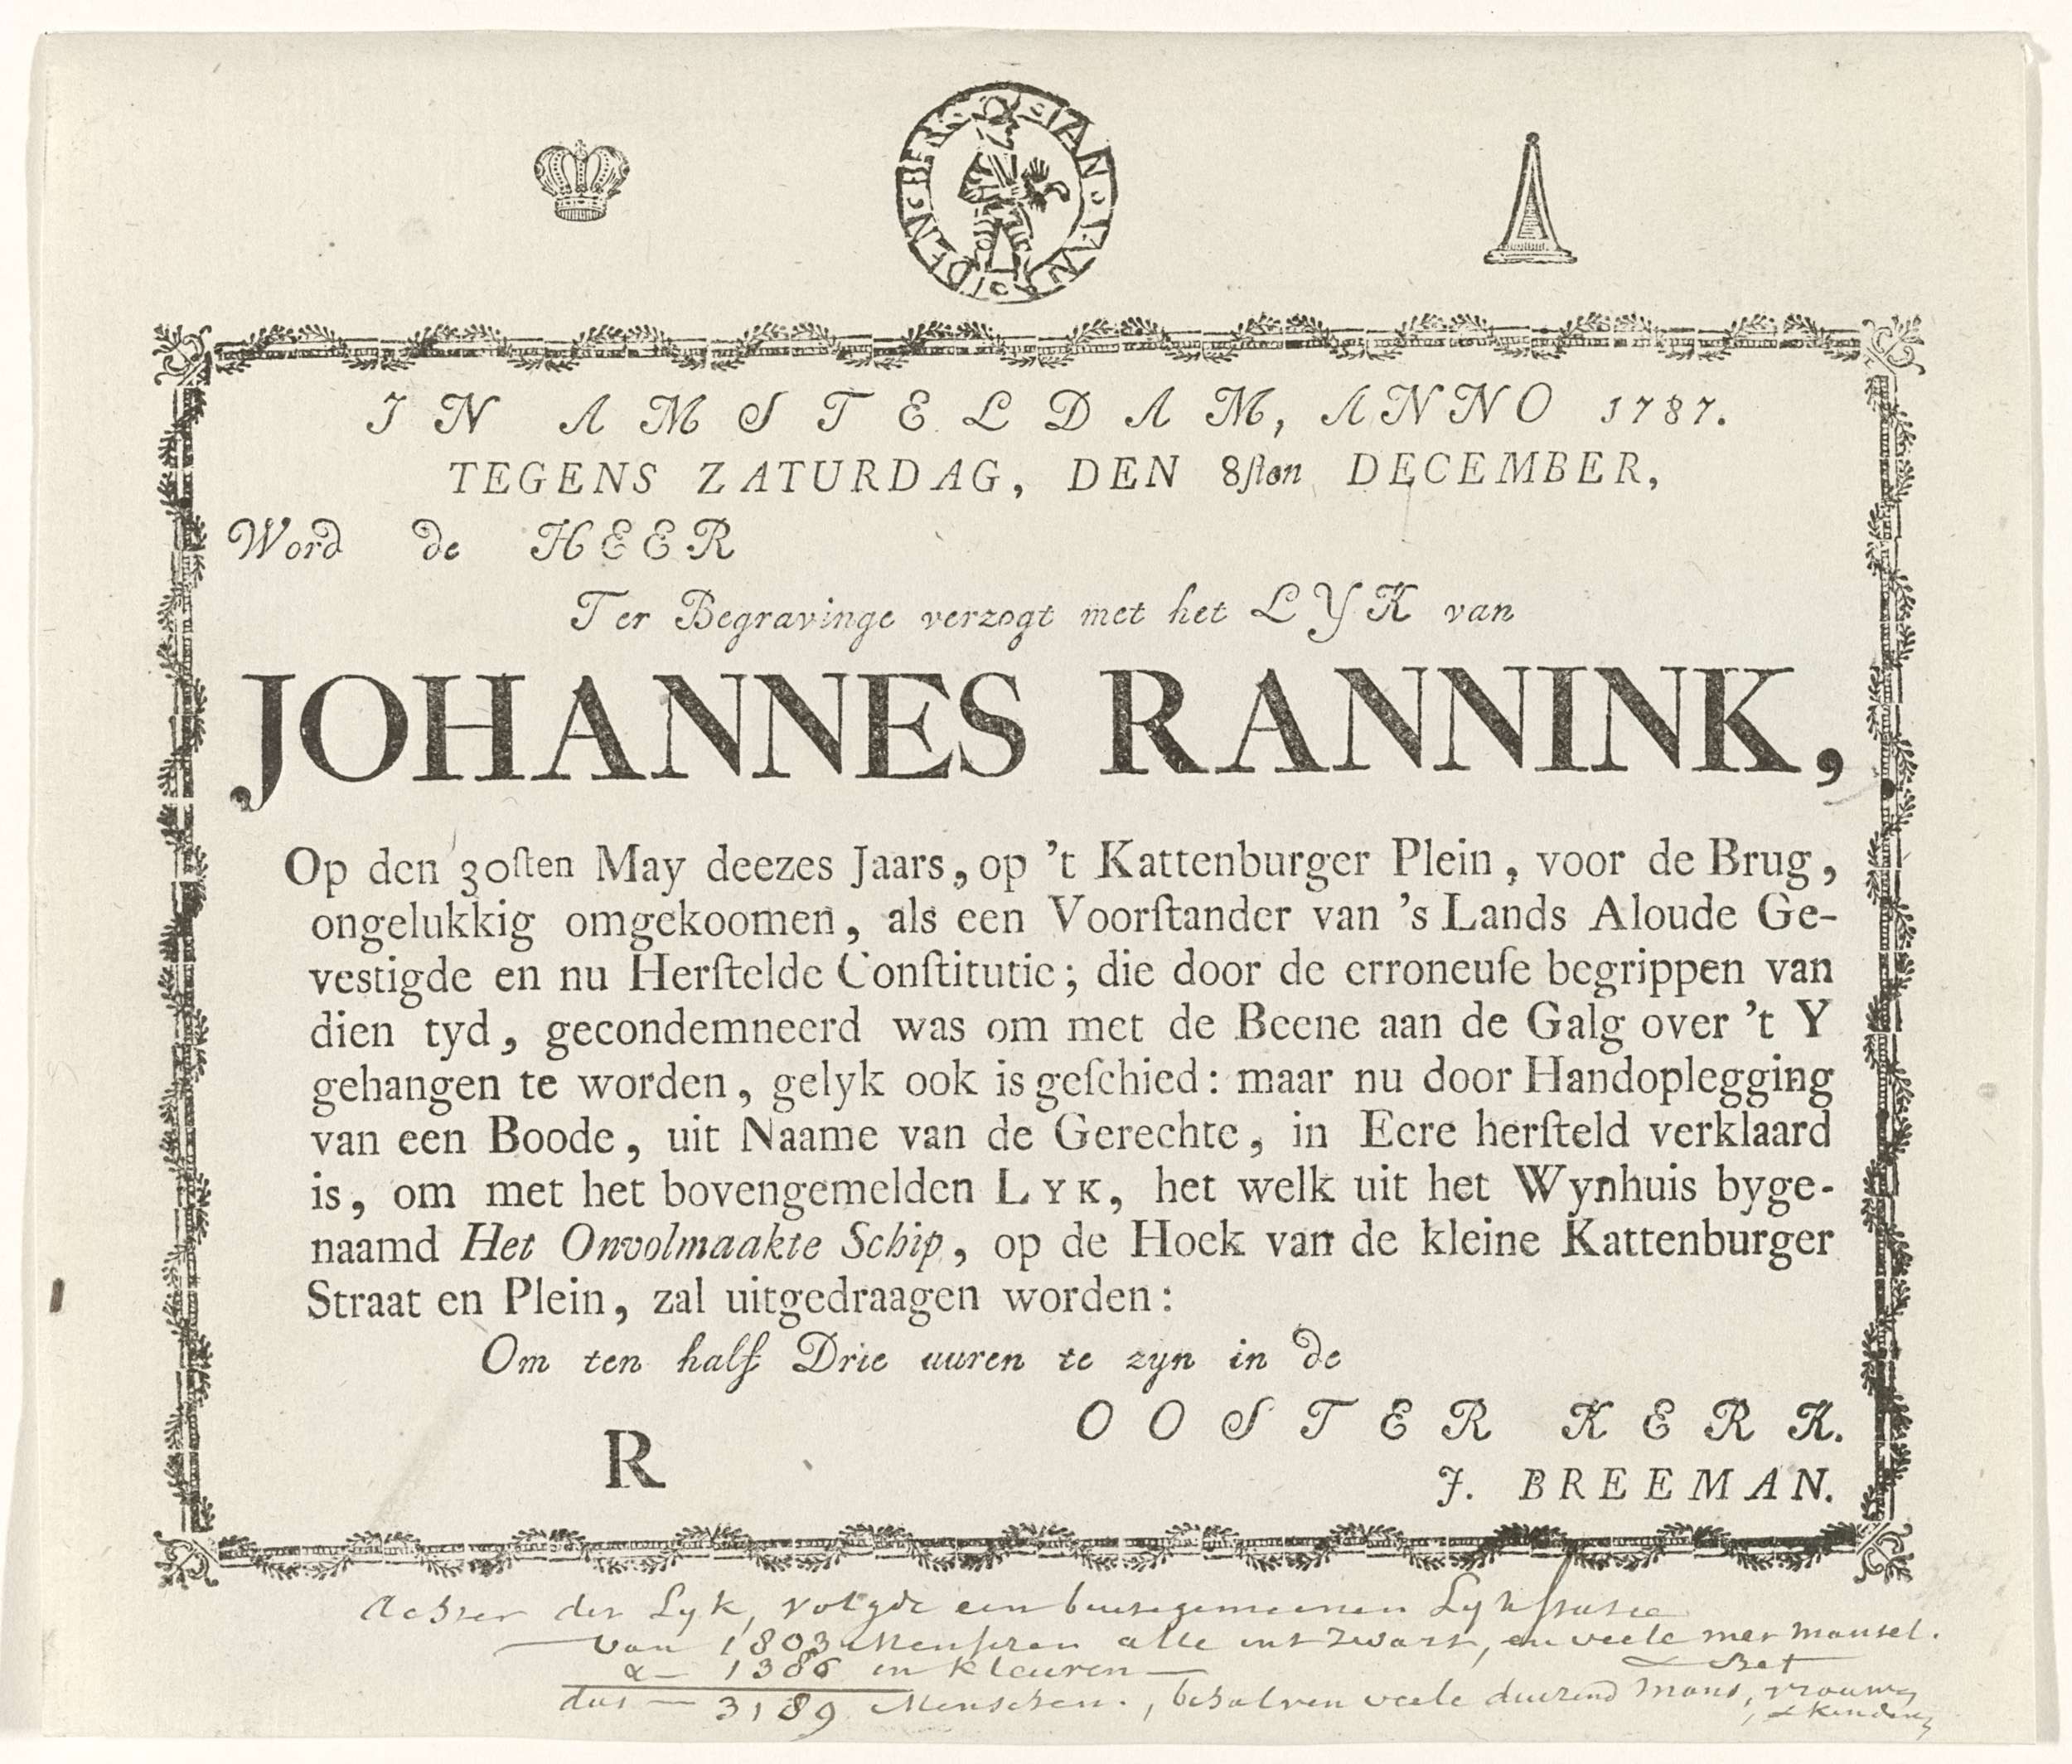 JAN VAN DEN BERK
IN AMSTELDAM, ANNO 1787.
TEGENS ZATURDAG, DEN 8ſten DECEMBER,
Word de HEER
Ter Begravinge verzogt met het LYK van
JOHANNES RANNINK,
Op den 30ſten May deezes Jaars, op 't Kattenburger Plein, voor de Brug,
ongelukkig omgekoomen, als een Voorſtander van 's Lands Aloude Ge-
vestigde en nu Herſtelde Conſtitutie; die door de erroneuſe begrippen van
dien tyd, gecondemneerd was om met de Beene aan de Galg over 't Y
gehangen te worden, gelyk ook is geſchied: maar nu door Handoplegging
van een Boode, uit Naame van de Gerechte, in Eere herſteld verklaard
is, om met het bovengemelden LYK, het welk uit het Wynhuis byge-
naamd Het Onvolmaakte Schip, op de Hoek van de kleine Kattenburger
Straat en Plein, zal uitgedraagen worden:
Om ten half Drie uuren te zyn in de
OOSTER KERK.
R
J. BREEMAN.
Achter der Lyk, volgde een buitegemeenen Lyk
van 1803 Menschen alle int zwart, en veele met mantel.
& – 1386 in kleuren – & Bef
dus – 3189 Menschen, behalven veele duizend Mans, vrouw,
& kinder